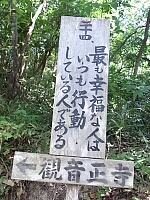 二十四
最も幸福な人は
いつも行動
している人である
←観音正寺